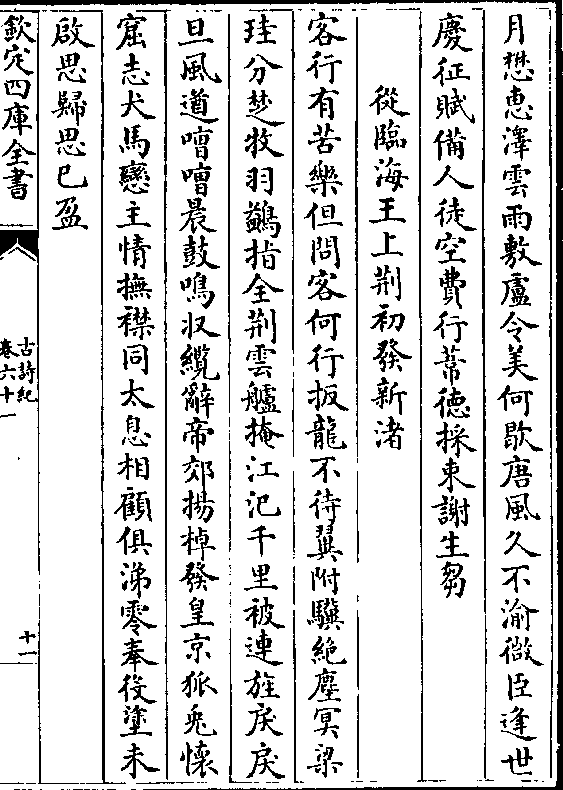 月懋惠澤雲雨敷盧令美何歇唐風久不渝微臣逢世
慶征賦備人徒空費行葦徳採束謝生芻
從臨海王上荆初發新渚
客行有苦樂但問客何行扳龍不待翼附驥絶塵冥梁
珪分楚牧羽鷁指全荆雲艫掩江汜千里被連旌戾戾
旦風遒嘈嘈晨鼓鳴収纜辭帝郊揚棹發皇京狐兎懷
窟志犬馬戀主情撫襟同太息相顧俱涕零奉役塗未
啟思歸思已盈
欽定四庫全書
古詩紀
卷六十一
十一